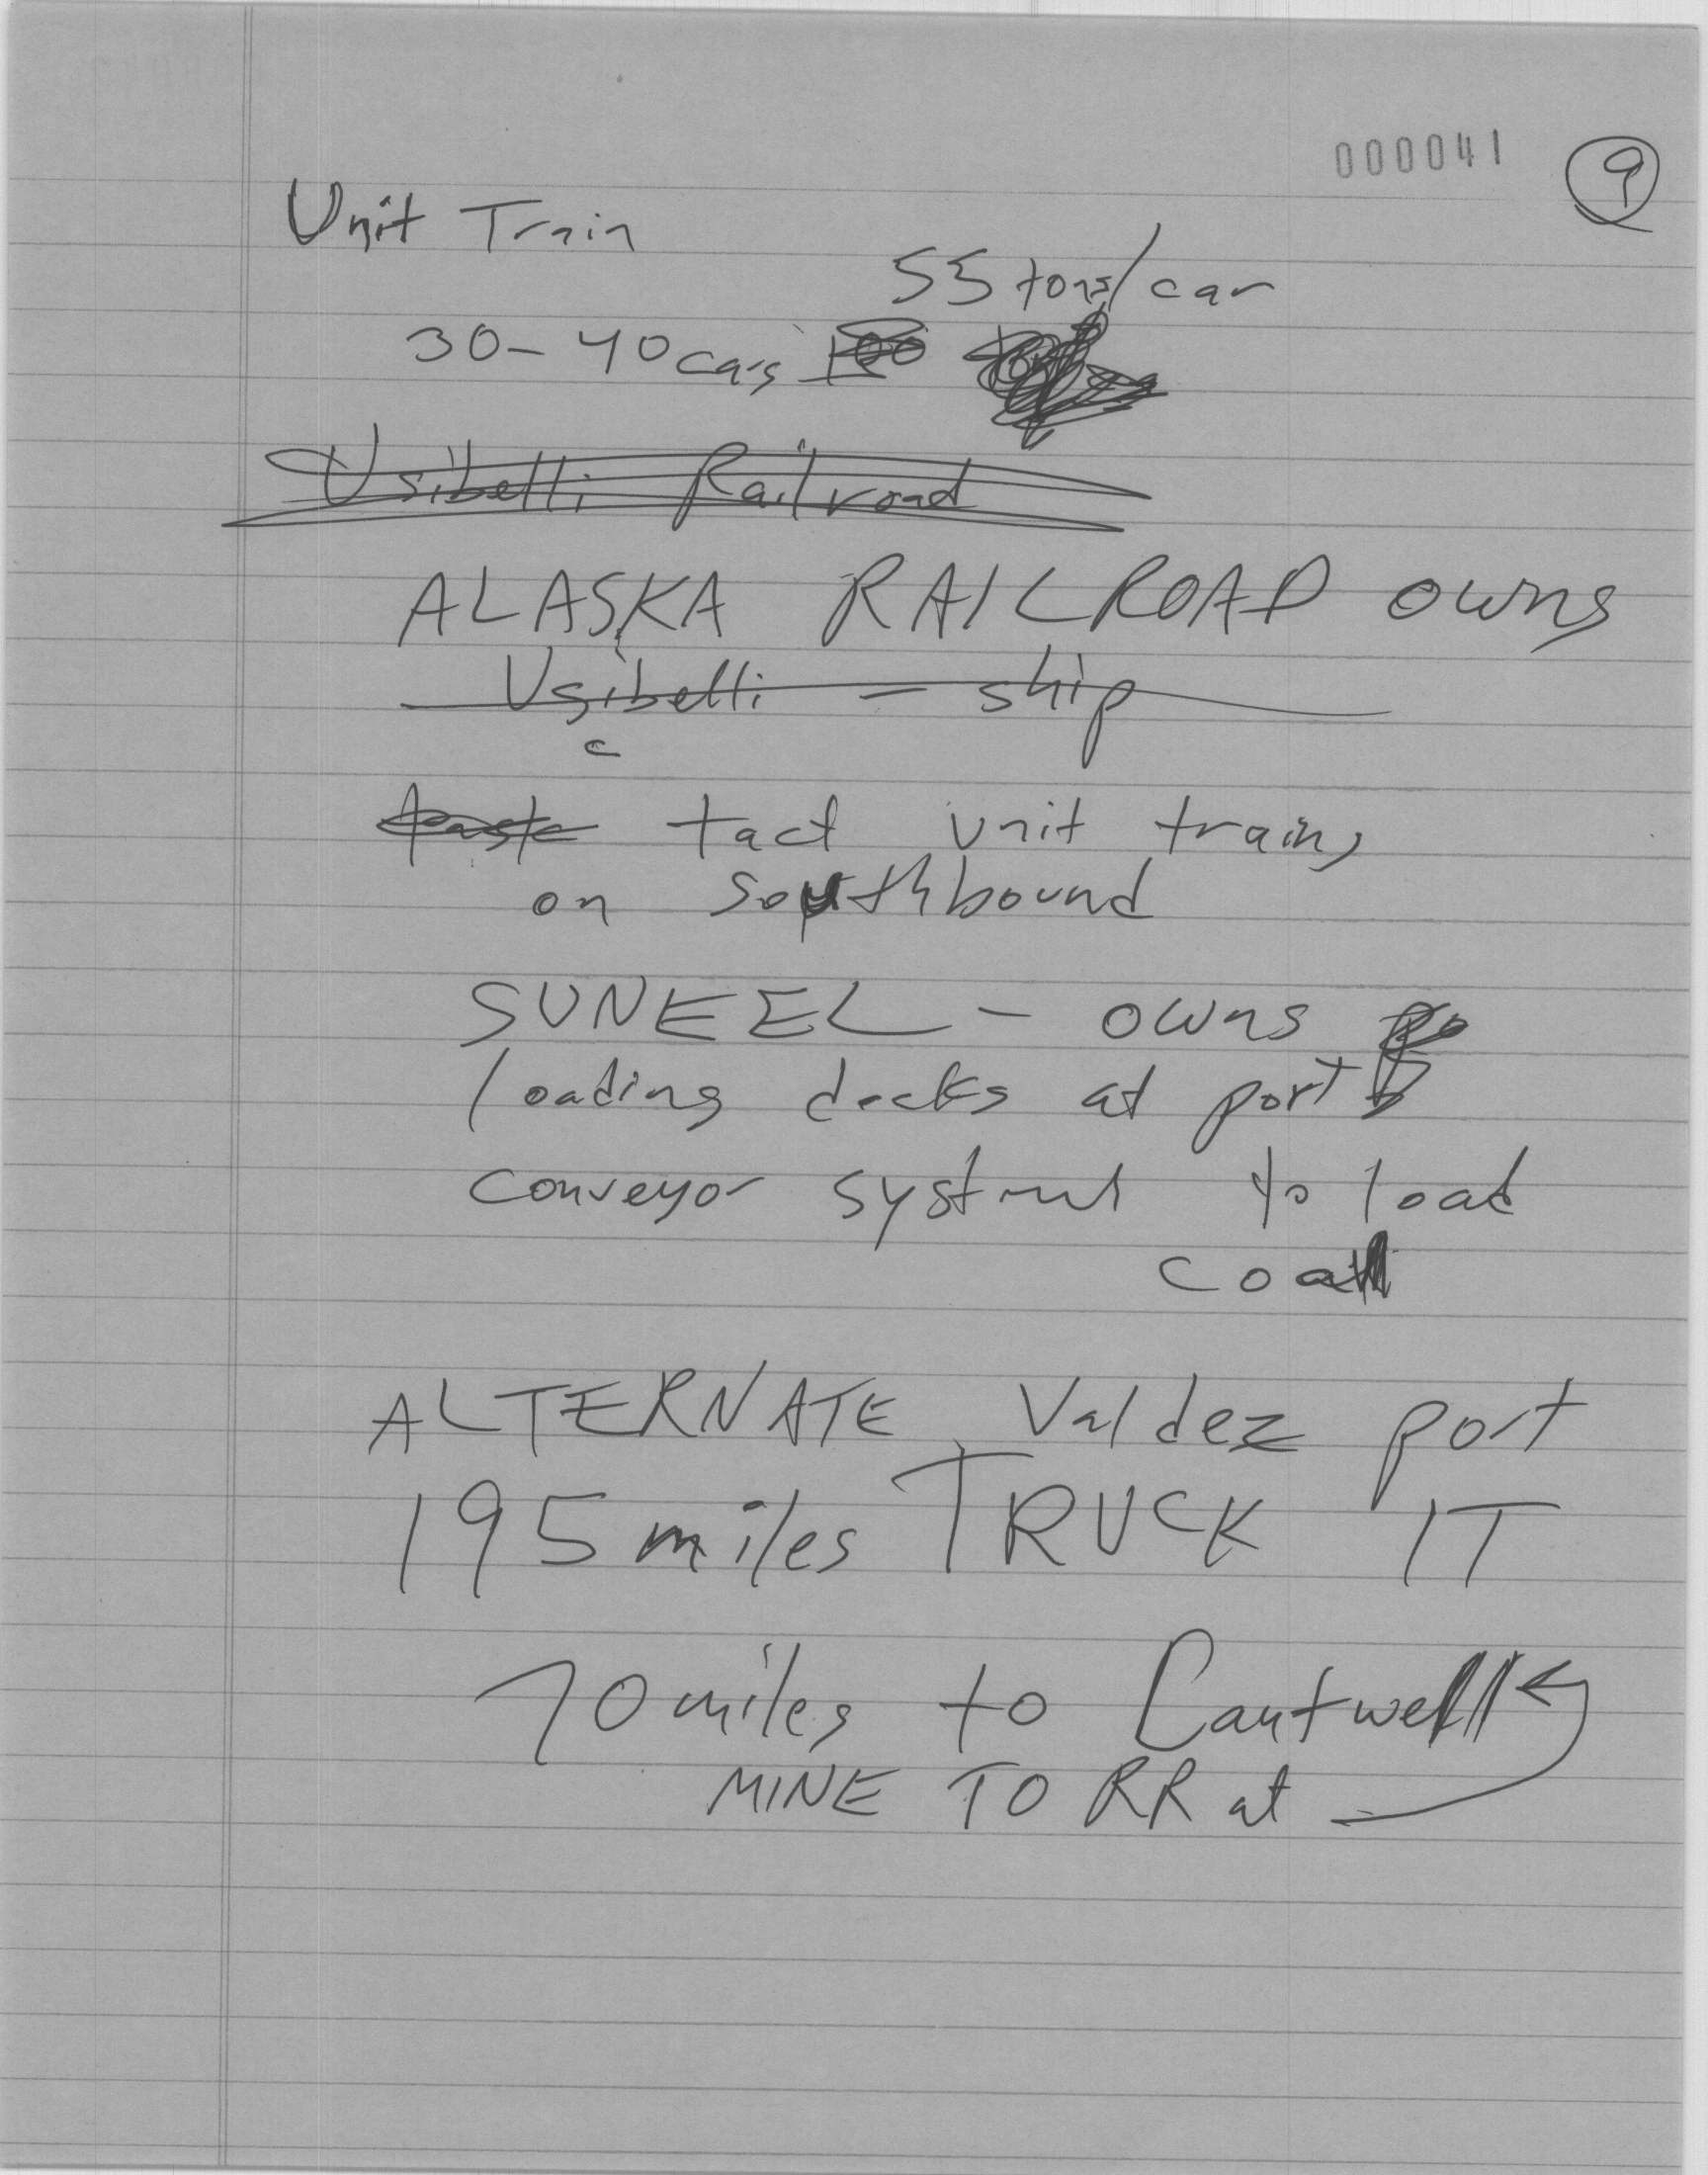 000041 9
Unit Train
55 tons/car
30-40 cars 100
Usibelli Railroad
ALASKA RAILROAD owns
Usibelli - ship
c
tact unit trains
on southbound
SUNEEL - owns
loading docks at port
conveyor systems to load
coal
ALTERNATE Valdez port
195 miles TRUCK IT
70 miles to Cantwell
MINE TO RR at